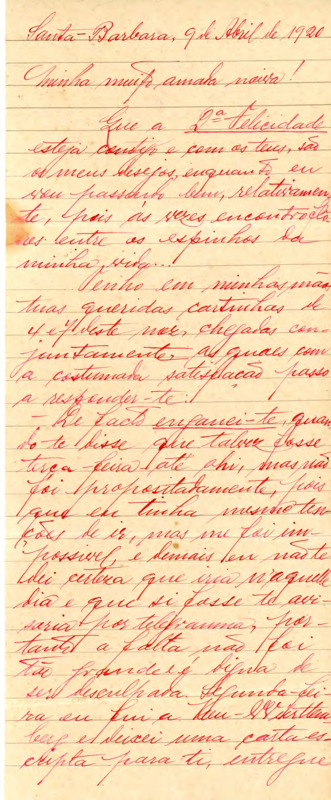 Santa-Barbara, 9 de Abril de 1920
Minha muito amada noiva!
Que a 2ª Felicidade
esteja comtigo e com os teus, são
os meus desejos, enquanto eu
vou passando bem, relativamen-
te, pois as vezes encontro flo-
res entre os espinhos da
minha vida...
Tenho em minhas mãos,
tuas queridas cartinhas de
4 e 7 deste mez, chegadas con-
juntamente, as quaes com
a costumada satisfacção passo
a responder-te.
- De facto enganei-te, quan-
do te disse que talvez fosse
terça-feira até ahi, mas não
foi propositadamente, pois
que eu tinha mesmo ten-
ções de ir, mas me foi im-
possivel, e demais eu não te
dei certeza que iria n'aquelle
dia e que si fosse te avi-
saria por telegramma, por-
tanto a falta não foi
tão grande e é digna de
ser desculpada. Segunda-fei-
ra eu fui a Neu-Württem-
berg e deixei uma carta es-
cripta para ti, entregue